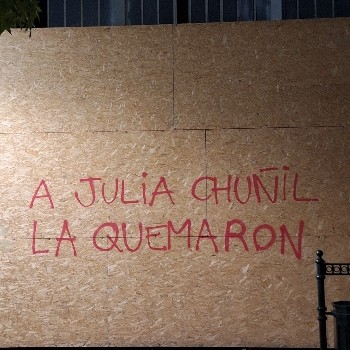 A JULIA CHUÑIL
LA QUEMARON